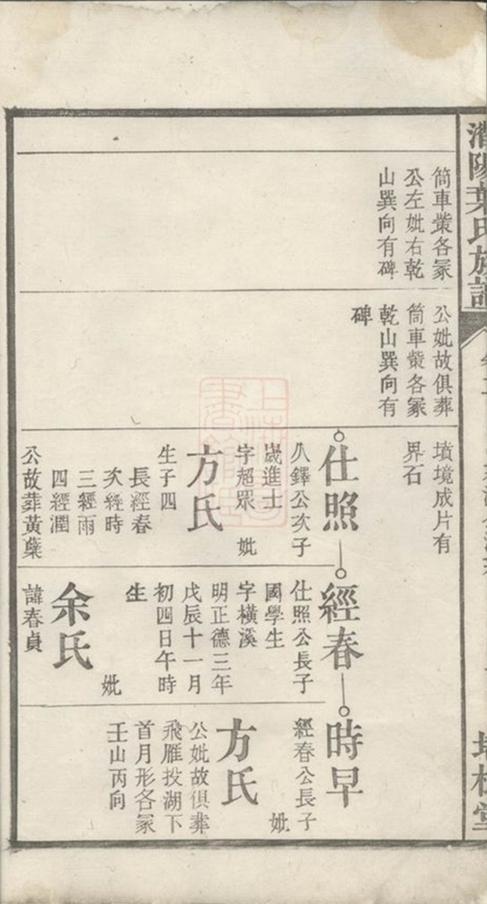 陽葉氏族譜
筒車黌各冢
公左妣右乾
山巽向有碑
公妣故俱葬
筒車黌各冢
乾山巽向有
碑
墳境成片有
界石
仕照
公鐸公次子
歲進士
字超眾 妣
方氏
生子四
長經春
次經時
三經雨
四經潤
公故葬黃葉
經春
仕照公長子
國學生
字橫溪
明正德三年
戊辰十一月
初四日午時
生
妣
余氏
諱春貞
時早
經春公長子
妣
方氏
公妣故俱葬
飛雁投湖下
首月形各冢
壬山丙向